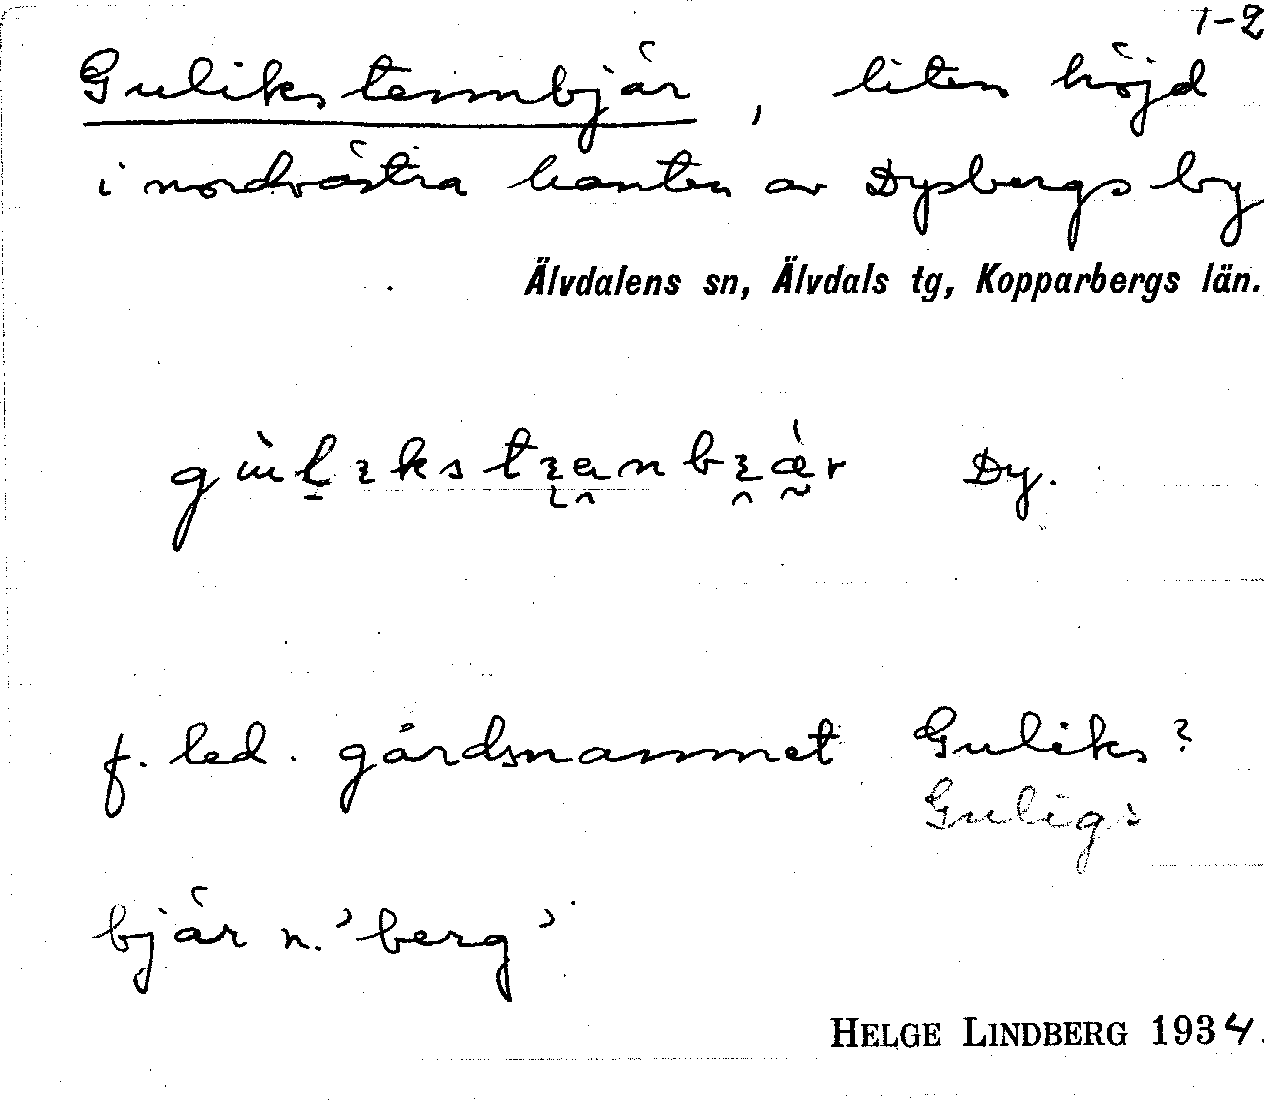 1-2
Gulikstennbjär, liten höjd
i nordvästra kanten av Dysbergs by
Älvdalens sn, Älvdals tg, Kopparbergs län.
Dy.
f. led. gårdsnamnet Guliks?
Guligs
bjär n. 'berg'
HELGE LINDBERG 1934.